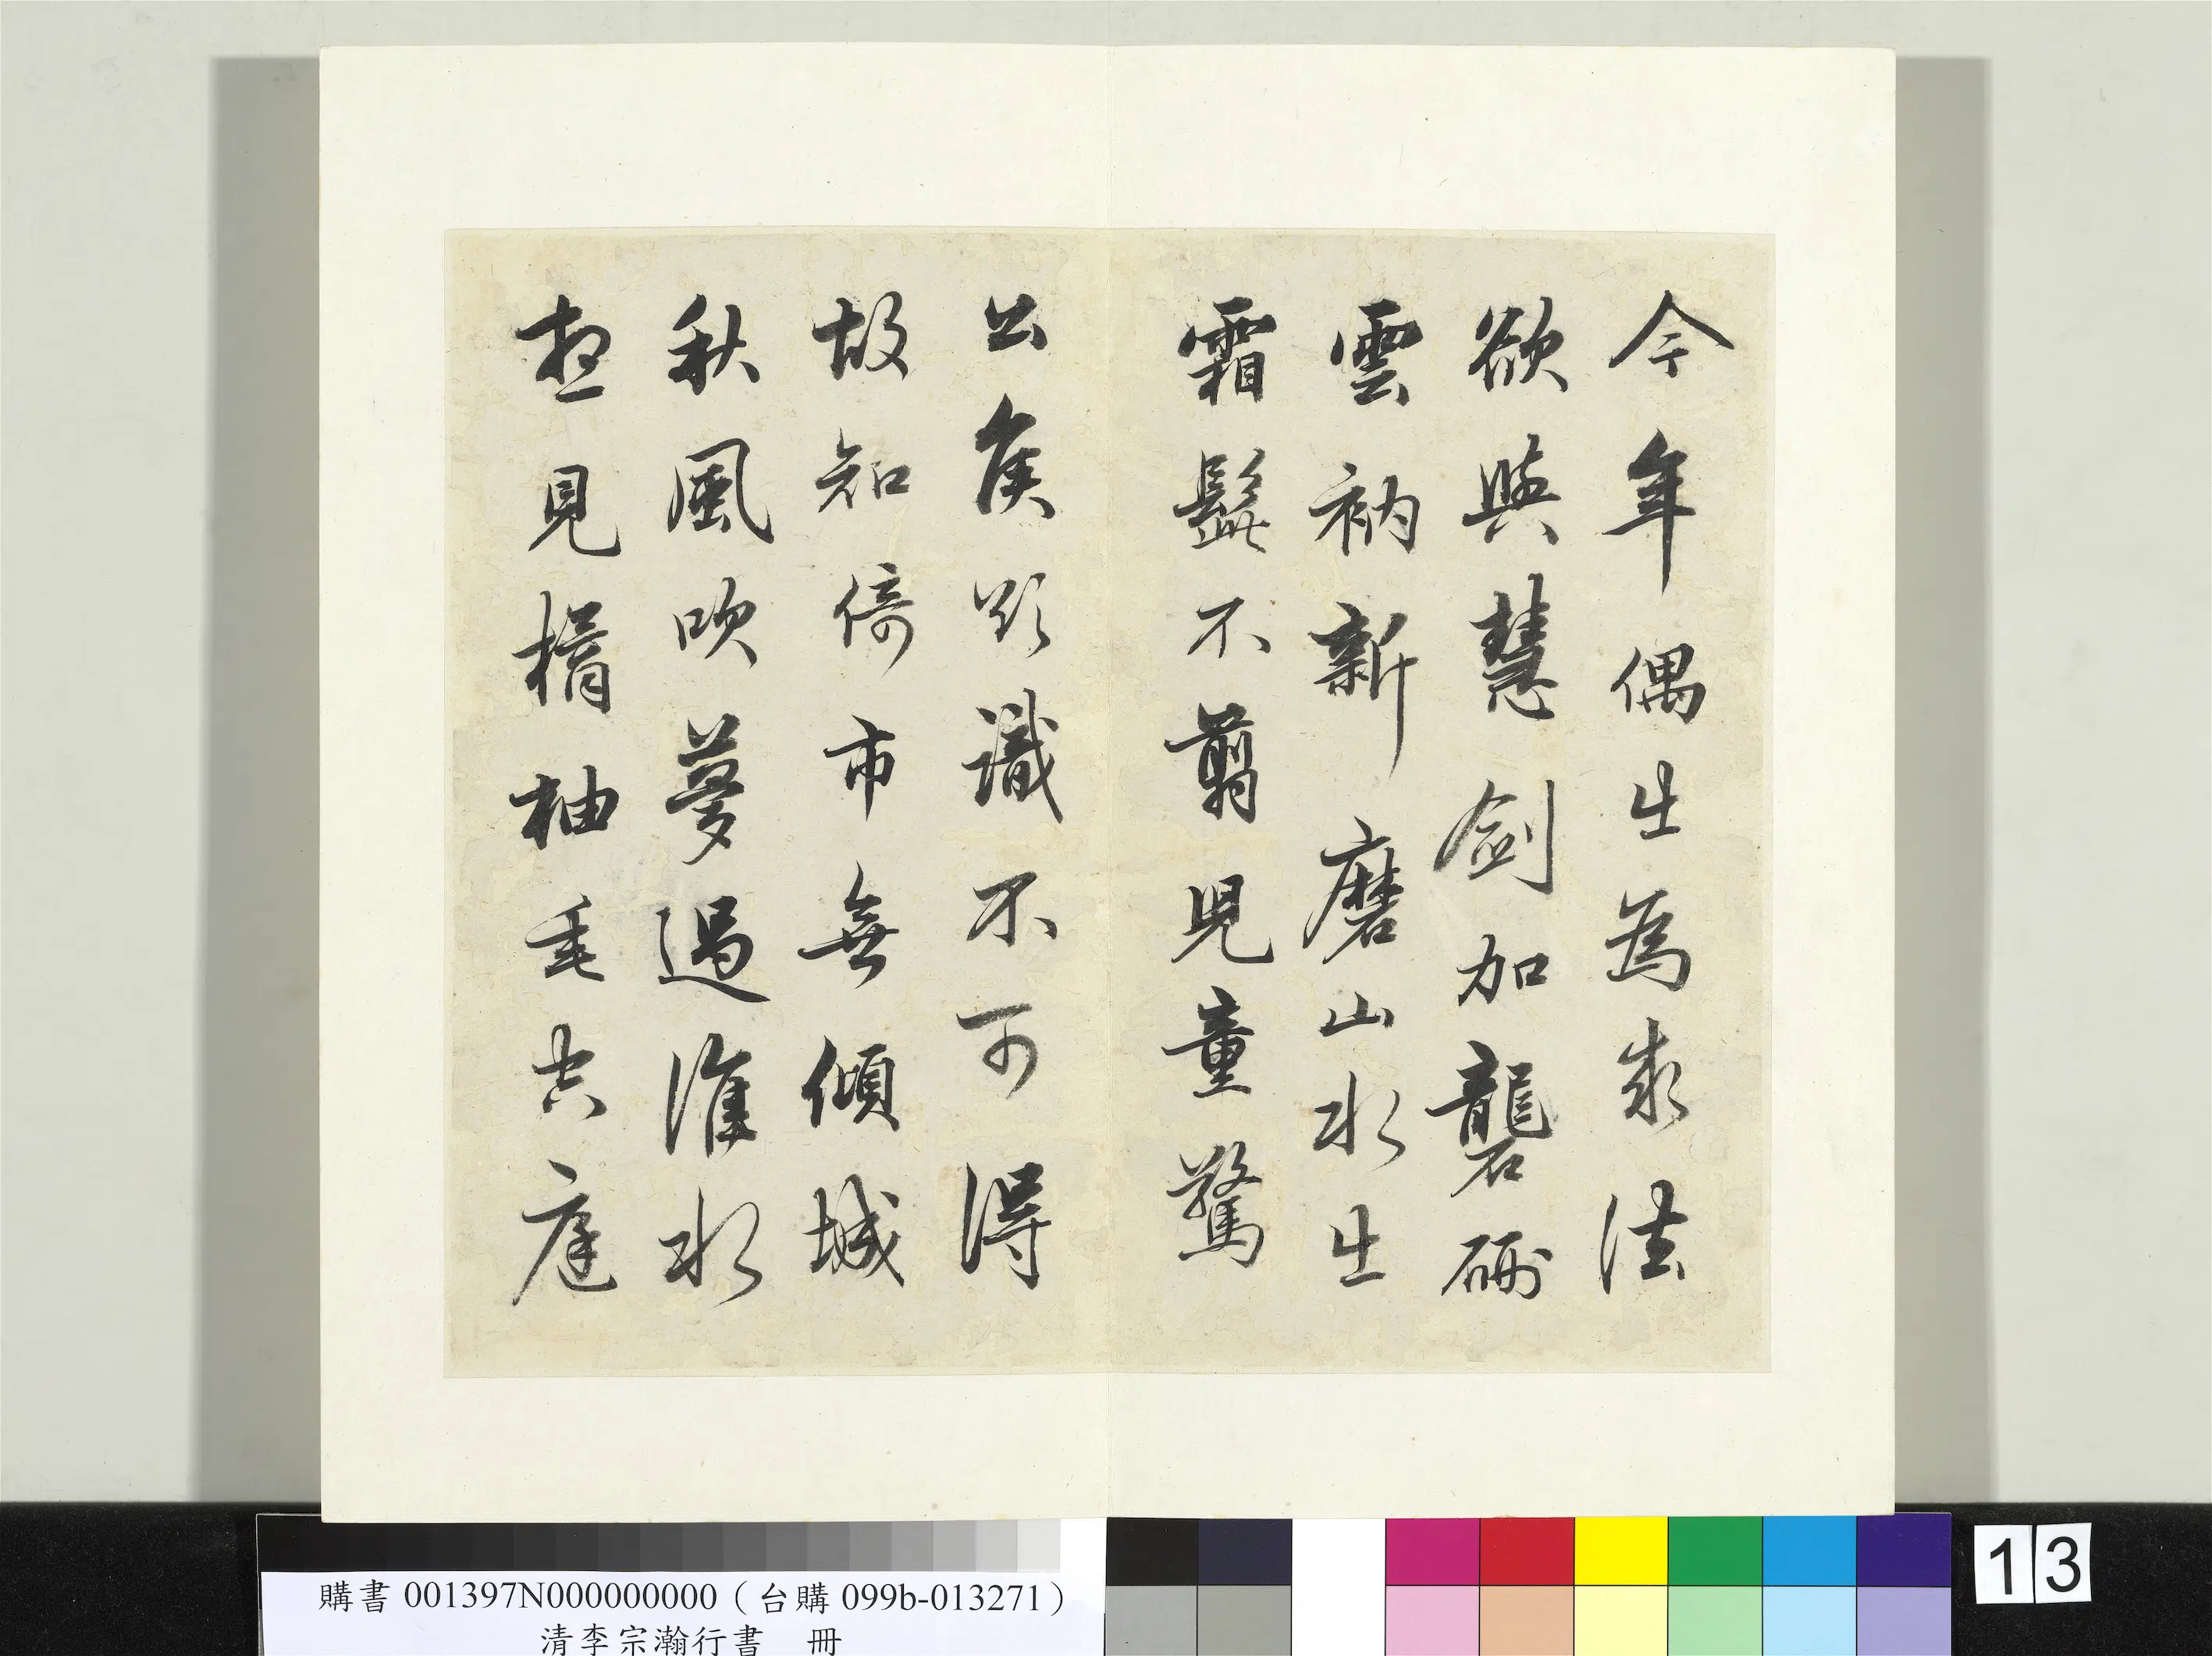 今年偶出為求法
欲與慧劍加礱硎
雲衲新磨山水出
霜髭不翦兒童驚
公侯欲識不可得
故知倚市無傾城
秋風吹夢過淮水
想見橘柚垂空庭
購書001397N000000000（台購099b-013271）
清李宗瀚行書　冊
13